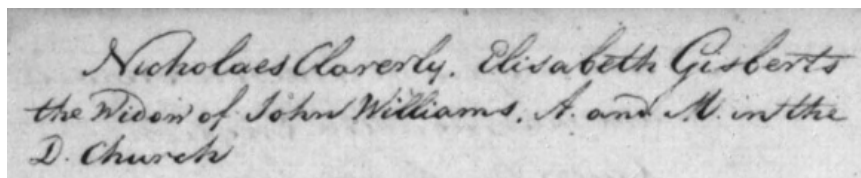 Nicholaes Claverly. Elisabeth Gisberts
the Widow of John Williams. A. and M. in the
D. Church